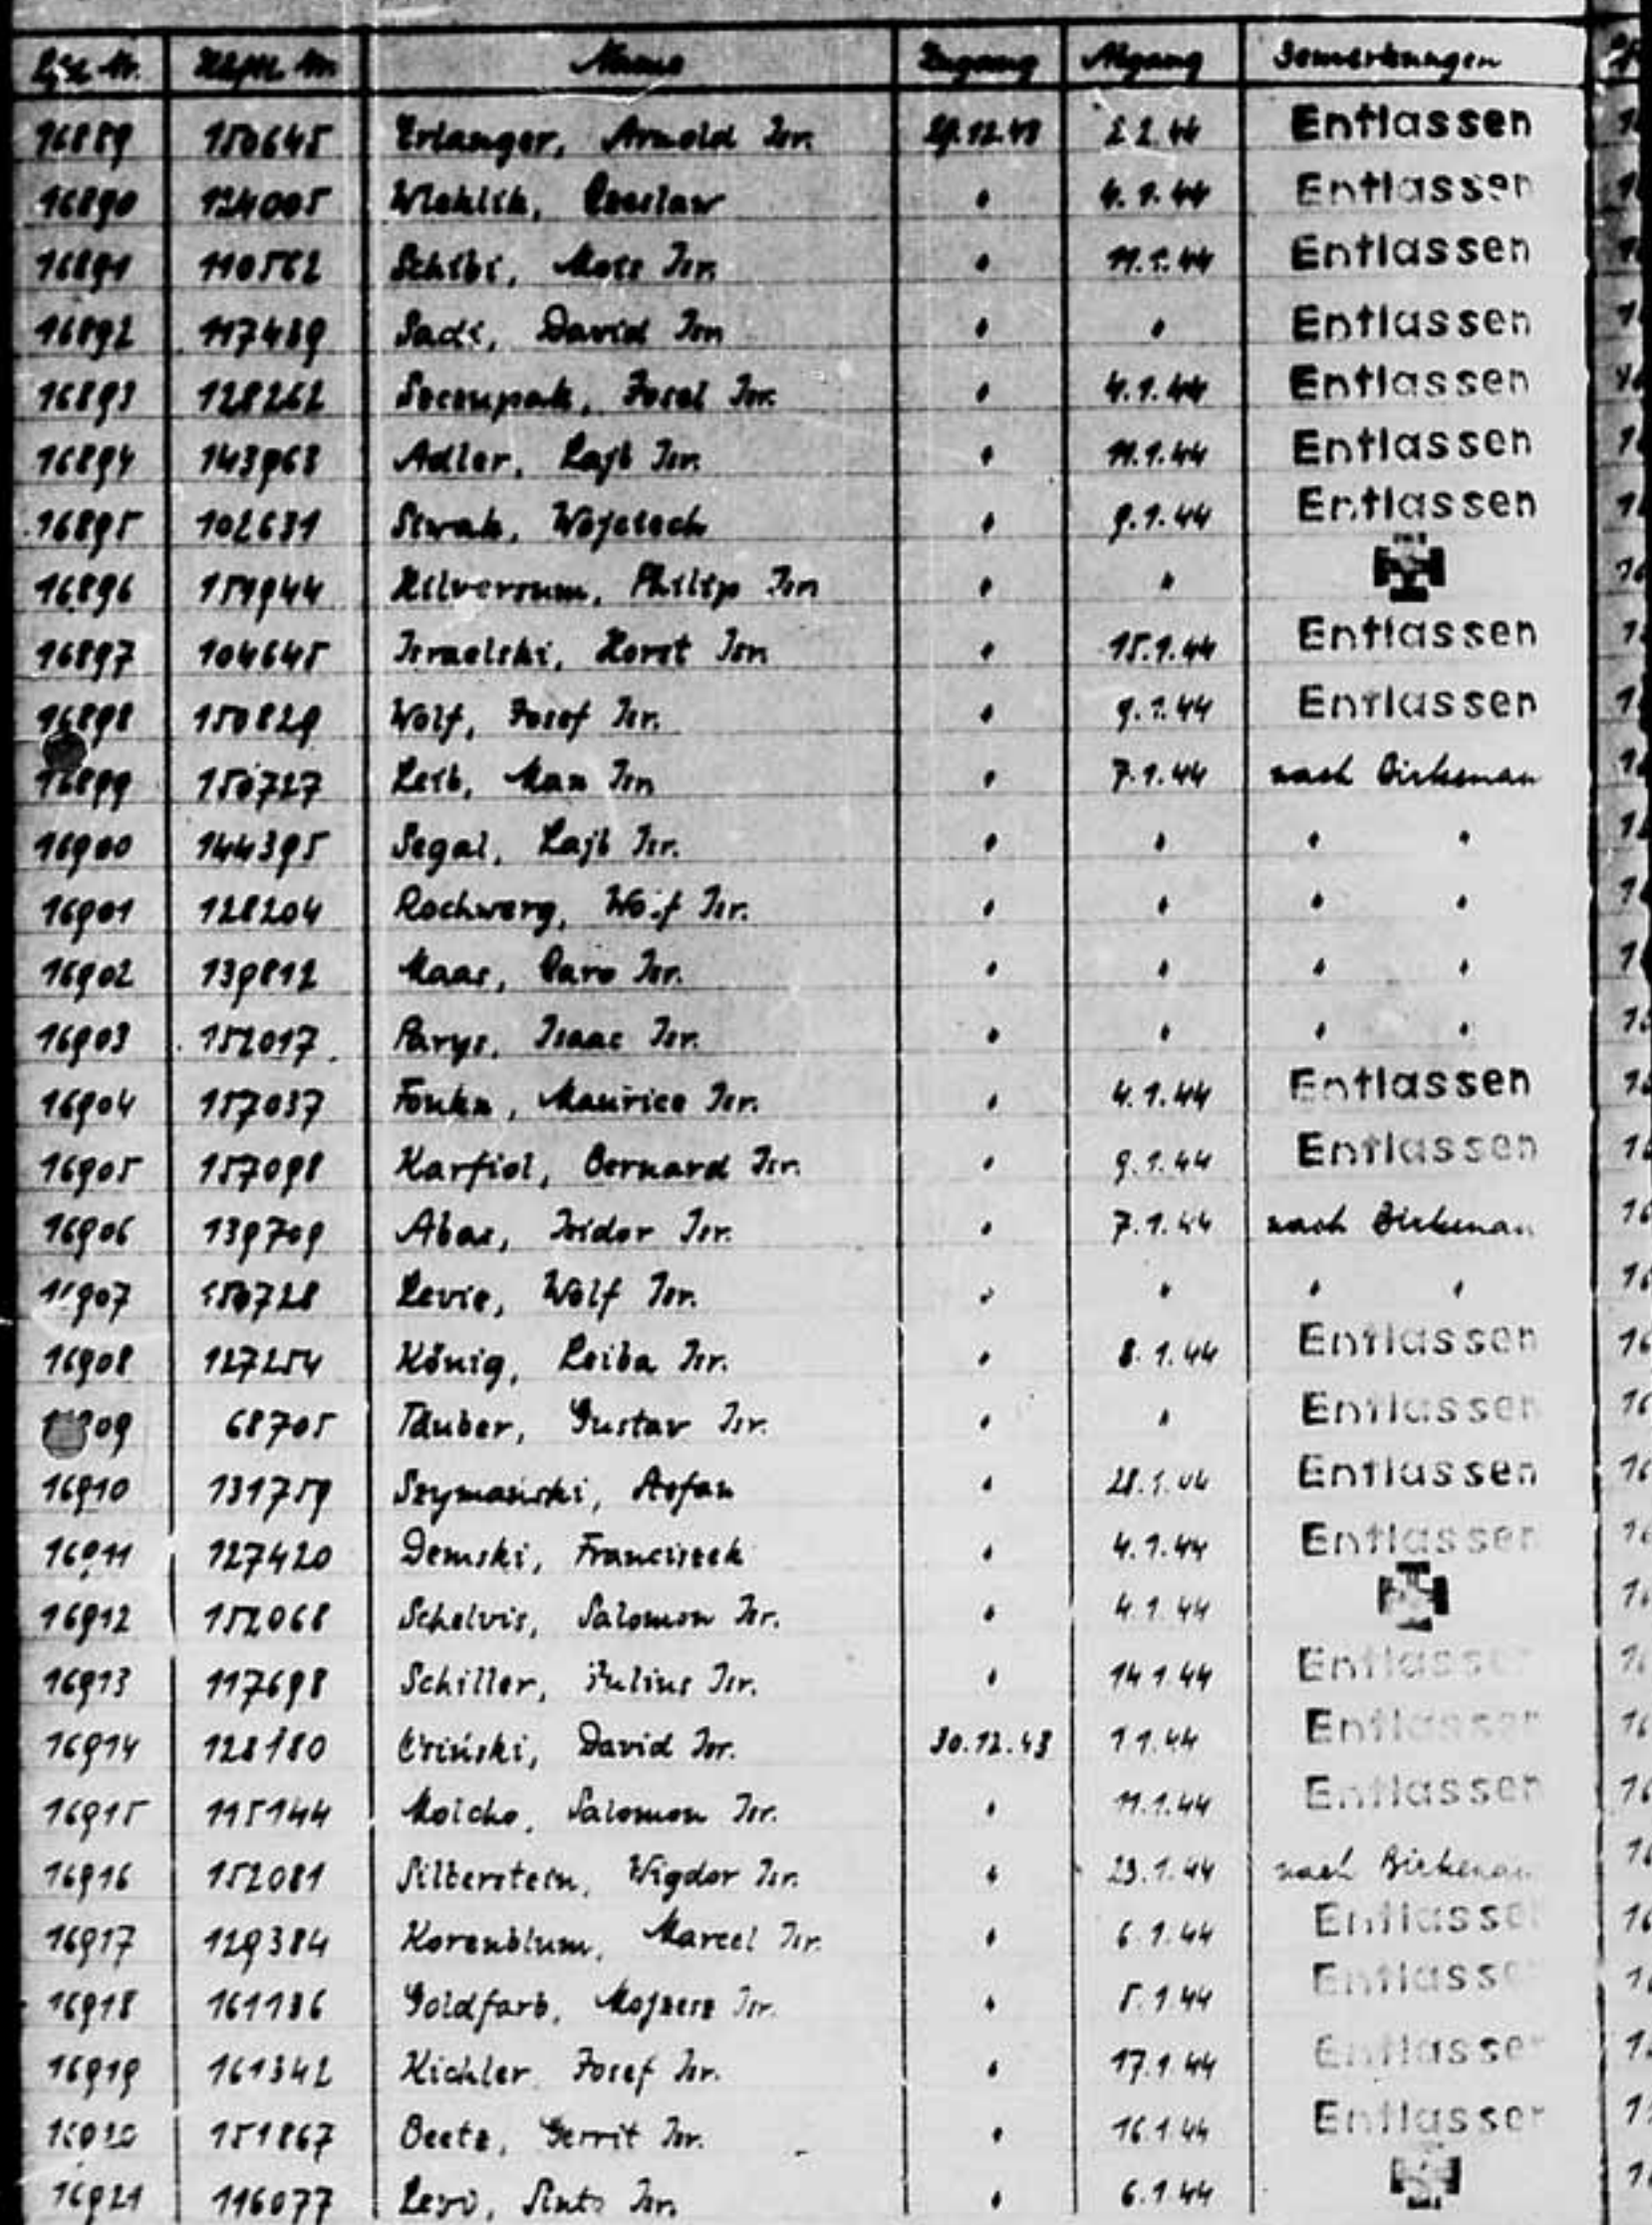 Lfd. Nr. Häftl. Nr. Name Zugang Abgang Bemerkungen
16889 150645 Erlanger, Arnold Isr. 29.12.43 2.2.44 Entlassen
16890 124005 Czeslaw " 4.1.44 Entlassen
16891 110562 Schibi, Isr. " 11.1.44 Entlassen
16892 117489 Sadi, David Isr. " " Entlassen
16893 128262 Josel Isr. " 4.1.44 Entlassen
16894 143968 Adler, Lajb Isr. " 11.1.44 Entlassen
16895 102631 Siwak, " 9.1.44 Entlassen
16896 151944 Hilversum, Philip Isr. " "
16897 104645 Israelski, Horst Isr. " 15.1.44 Entlassen
16898 150829 Wolf, Josef Isr. " 9.1.44 Entlassen
16899 150727 Leib, Max Isr. " 7.1.44 nach Birkenau
16900 144395 Segal, Lajb Isr. " " " "
16901 128204 Rochwerg, Wolf Isr. " " " "
16902 139812 Maas, Isr. " " " "
16903 152017 Parys, Isaac Isr. " " " "
16904 157037 Maurice Isr. " 4.1.44 Entlassen
16905 157098 Karfiol, Bernard Isr. " 9.1.44 Entlassen
16906 139709 Abas, Isidor Isr. " 7.1.44 nach Birkenau
16907 150728 Levie, Wolf Isr. " " " "
16908 127254 König, Leiba Isr. " 8.1.44 Entlassen
16909 68705 Täuber, Gustav Isr. " " Entlassen
16910 131759 Szymański, " 28.1.44 Entlassen
16911 127420 Demski, Franciszek " 4.1.44 Entlassen
16912 152068 Schelvis, Salomon Isr. " 4.1.44
16913 117698 Schiller, Julius Isr. " 14.1.44 Entlassen
16914 128180 David Isr. 30.12.43 1.1.44 Entlassen
16915 115144 Molcho, Salomon Isr. " 11.1.44 Entlassen
16916 152081 Silberstein, Wigdor Isr. " 23.1.44 nach Birkenau
16917 129384 Korenblum, Marcel Isr. " 6.1.44 Entlassen
16918 161186 Goldfarb, Mojzesz Isr. " 5.1.44 Entlassen
16919 161342 Kichler Josef Isr. " 17.1.44 Entlassen
16920 151867 Beetz, Gerrit Isr. " 16.1.44 Entlassen
16921 116077 Isr. " 6.1.44